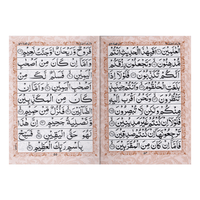 مُّدْهِنُونَ ۝ وَتَجْعَلُونَ رِزْقَكُمْ
اَنَّكُمْ تُكَذِّبُوْنَ ۝ فَلَوْلَاۤ اِذَا
بَلَغَتِ الْحُلْقُوْمَ ۝ وَاَنْتُمْ حِيْنَئِذٍ
تَنْظُرُوْنَ ۝ وَنَحْنُ اَقْرَبُ اِلَيْهِ
مِنْكُمْ وَلٰكِنْ لَّا تُبْصِرُوْنَ ۝
فَلَوْلَاۤ اِنْ كُنْتُمْ غَيْرَ مَدِيْنِيْنَ ۝
تَرْجِعُوْنَهَاۤ اِنْ كُنْتُمْ صٰدِقِيْنَ ۝
فَاَمَّاۤ اِنْ كَانَ مِنَ الْمُقَرَّبِيْنَ ۝
فَرَوْحٌ وَّرَيْحَانٌ وَّجَنَّتُ نَعِيْمٍ ۝
وَاَمَّاۤ اِنْ كَانَ مِنْ اَصْحٰبِ
الْيَمِيْنِ ۝ فَسَلٰمٌ لَّكَ مِنْ
اَصْحٰبِ الْيَمِيْنِ ۝ وَاَمَّاۤ اِنْ
كَانَ مِنَ الْمُكَذِّبِيْنَ
الضَّآلِّيْنَ ۝ فَنُزُلٌ مِّنْ حَمِيْمٍ ۝
وَّتَصْلِيَةُ جَحِيْمٍ ۝ اِنَّ هٰذَا
لَهُوَ حَقُّ الْيَقِيْنِ ۝ فَسَبِّحْ
بِاسْمِ رَبِّكَ الْعَظِيْمِ ۝